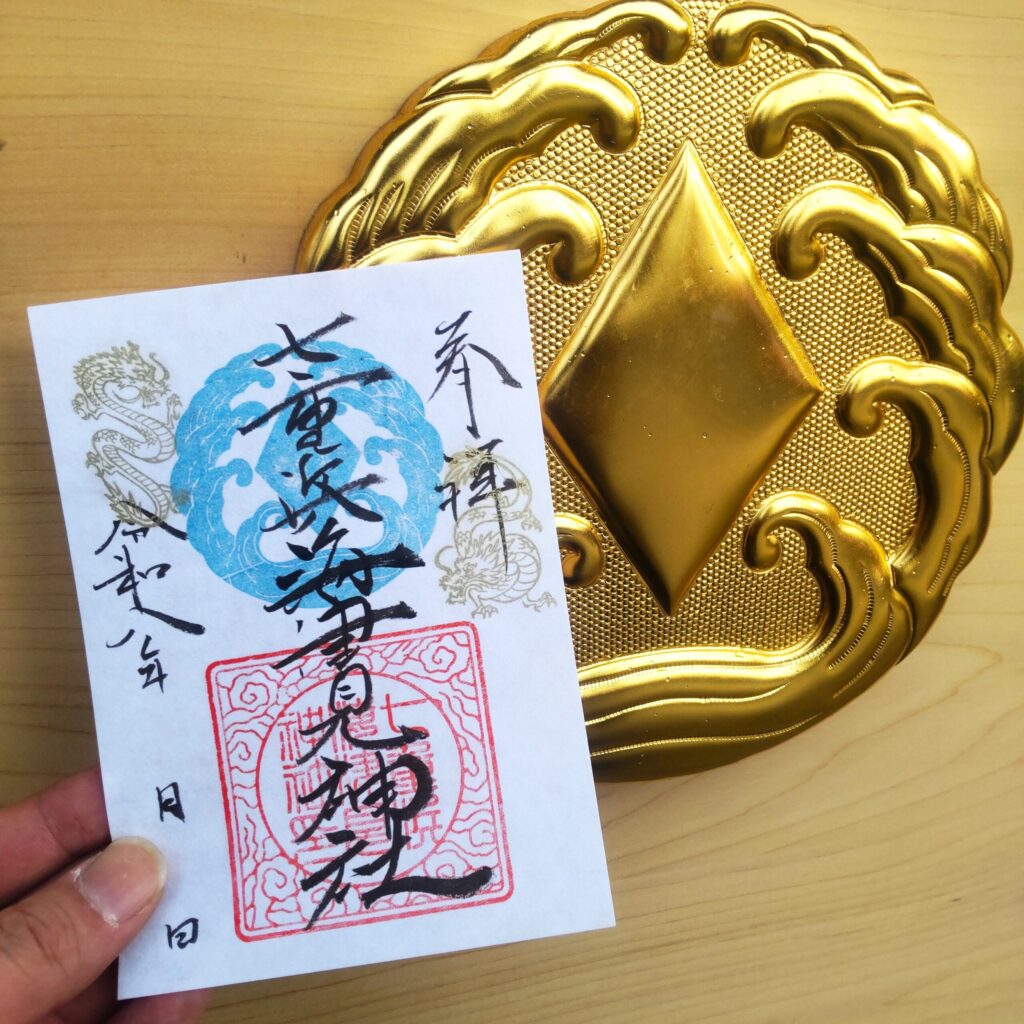 奉拝
七重浜海津見神社
令和八年　月　日